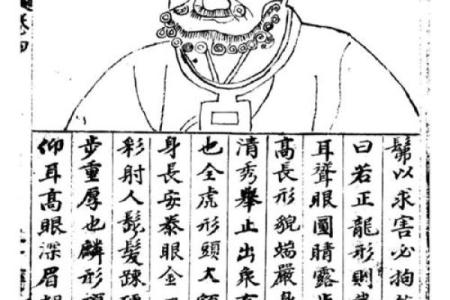 髴以求害必拘
曰若正龍形則
耳聳眼圓睛露
高長形貌端嚴身
清秀舉止出衆有
也全虎形頭大額
身長安泰眼金
彩射人鬍髮踈
步重厚也麟形
仰耳高眼深眉